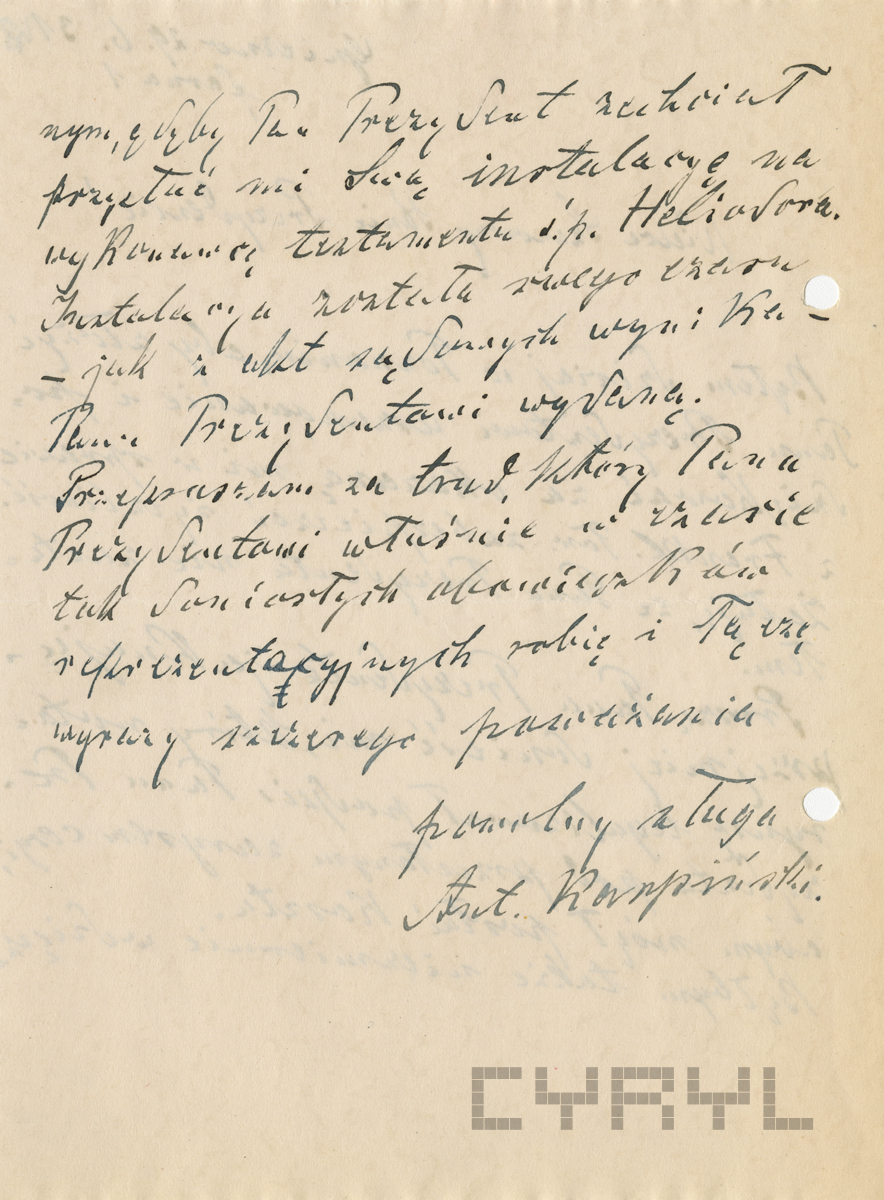 nym, gdyby Pan Prezydent zechciał
przysłać mi Swą instalację na
wykonawcę testamentu ś.p. Heliodora.
Instalacja została swego czasu
– jak z akt sądowych wynika –
Panu Prezydentowi wydaną.
Przepraszam za trud, który Panu
Prezydentowi właśnie w czasie
tak doniosłych obowiązków
reprezentacyjnych robię i łączę
wyrazy szczerego poważania
powolny sługa
Ant. Karpiński.
CYRYL